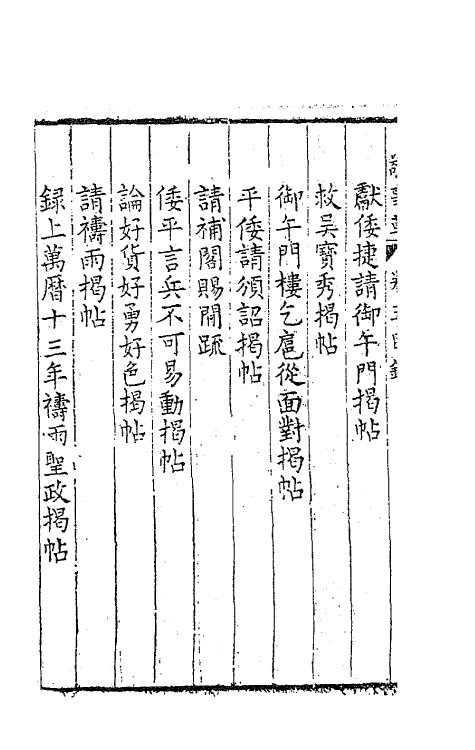 獻倭捷請御午門揭帖
救吳寶秀揭帖
御午門樓乞扈從面對揭帖
平倭請頒詔揭帖
請補閣賜閒疏
倭平言兵不可易動揭帖
論好貨好勇好色揭帖
請禱雨揭帖
録上萬曆十三年禱雨聖政揭帖